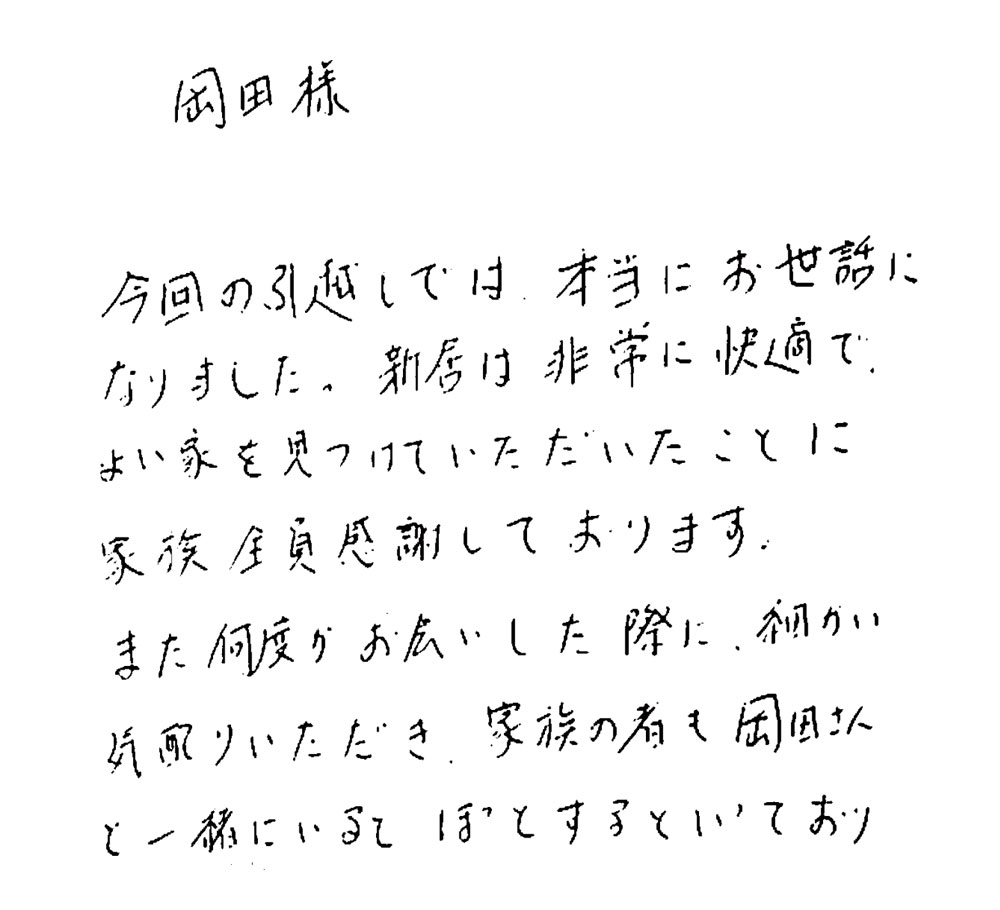 岡田様
今回の引越しでは、本当にお世話に
なりました。新居は非常に快適で、
よい家を見つけていただいたことに
家族全員感謝しております。
また何度かお会いした際に、細かい
気配りいただき、家族の者も岡田さん
と一緒にいると ほっとするといっており